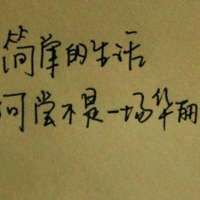 简单的生活
何尝不是一场华丽